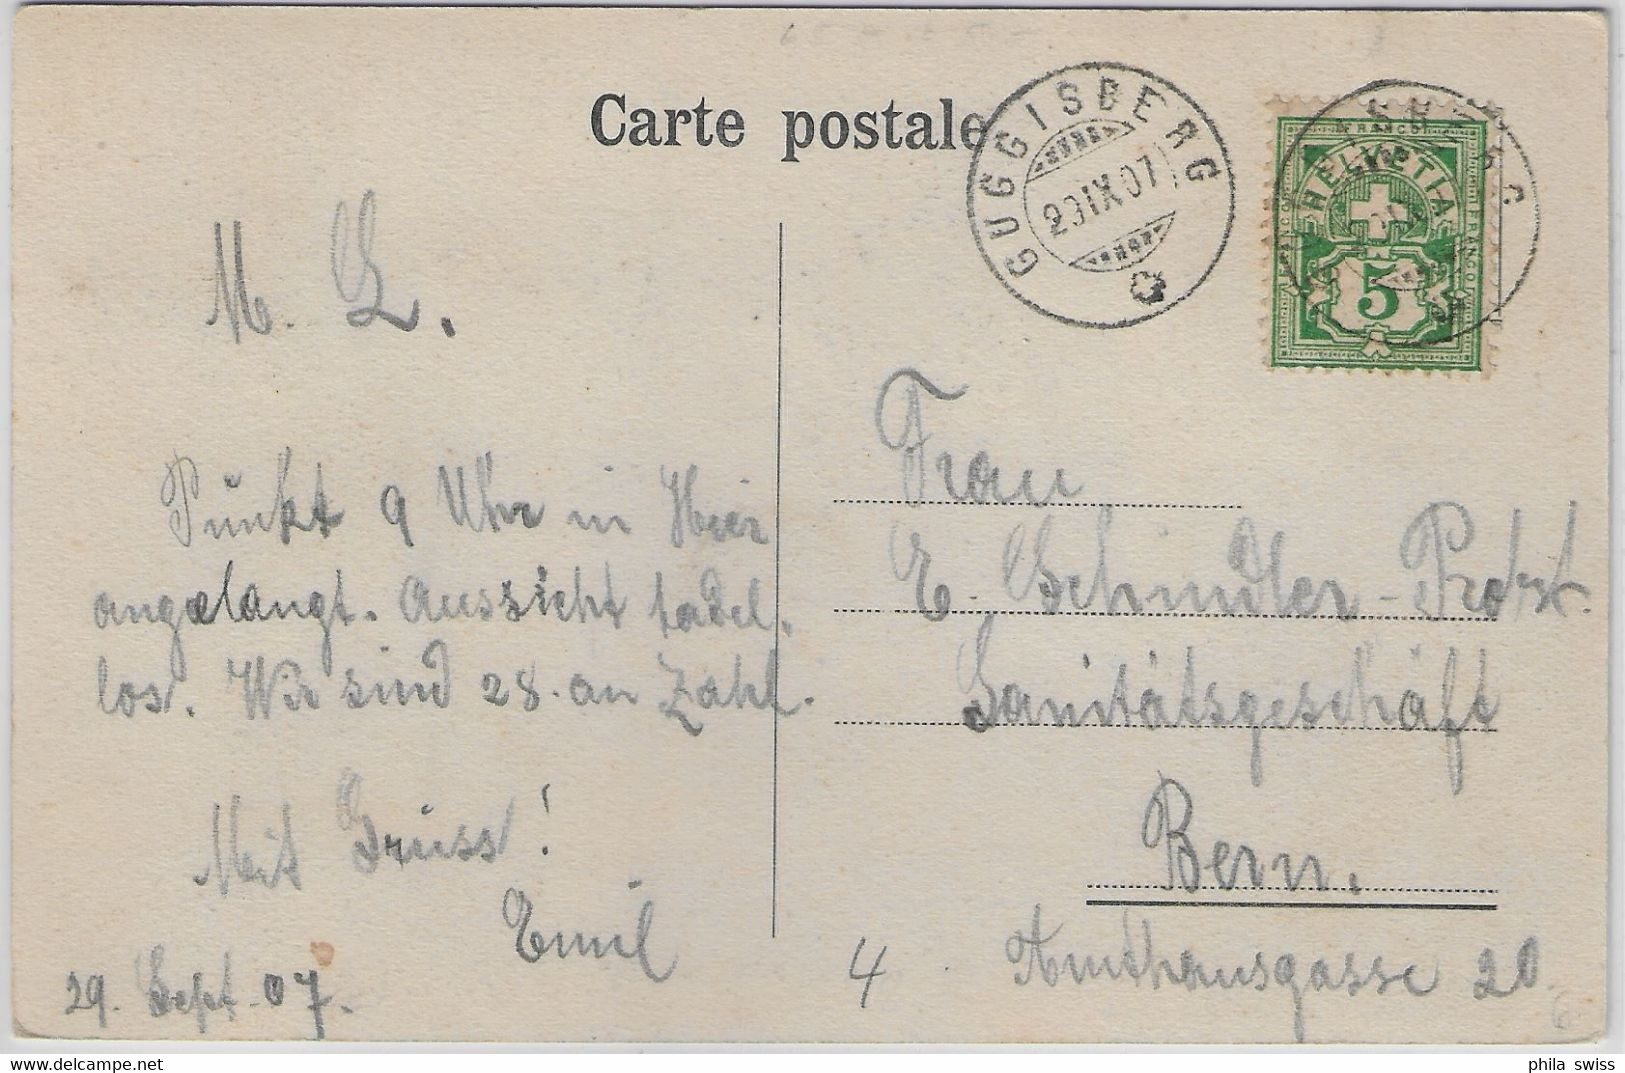 Carte postale
GUGGISBERG
29 IX 07
FRANCO
HELVETIA
5
M. L.
Punkt 9 Uhr in Hier
angelangt. Aussicht tadel-
los. Wir sind 28 an Zahl.
Mit Gruss!
Emil
29. Sept. 07.
Frau
E. Schindler-Probst.
Sanitätsgeschäft
Bern.
Amthausgasse 20
4
phila swiss